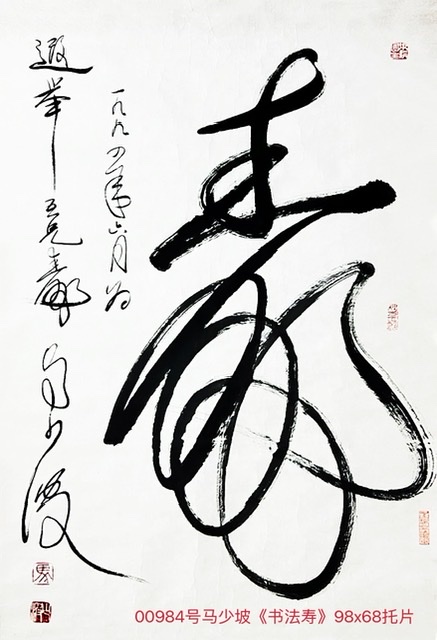 壽
一九九四年六月为
遐举吾兄壽 马少波
00984号马少坡《书法寿》98x68托片